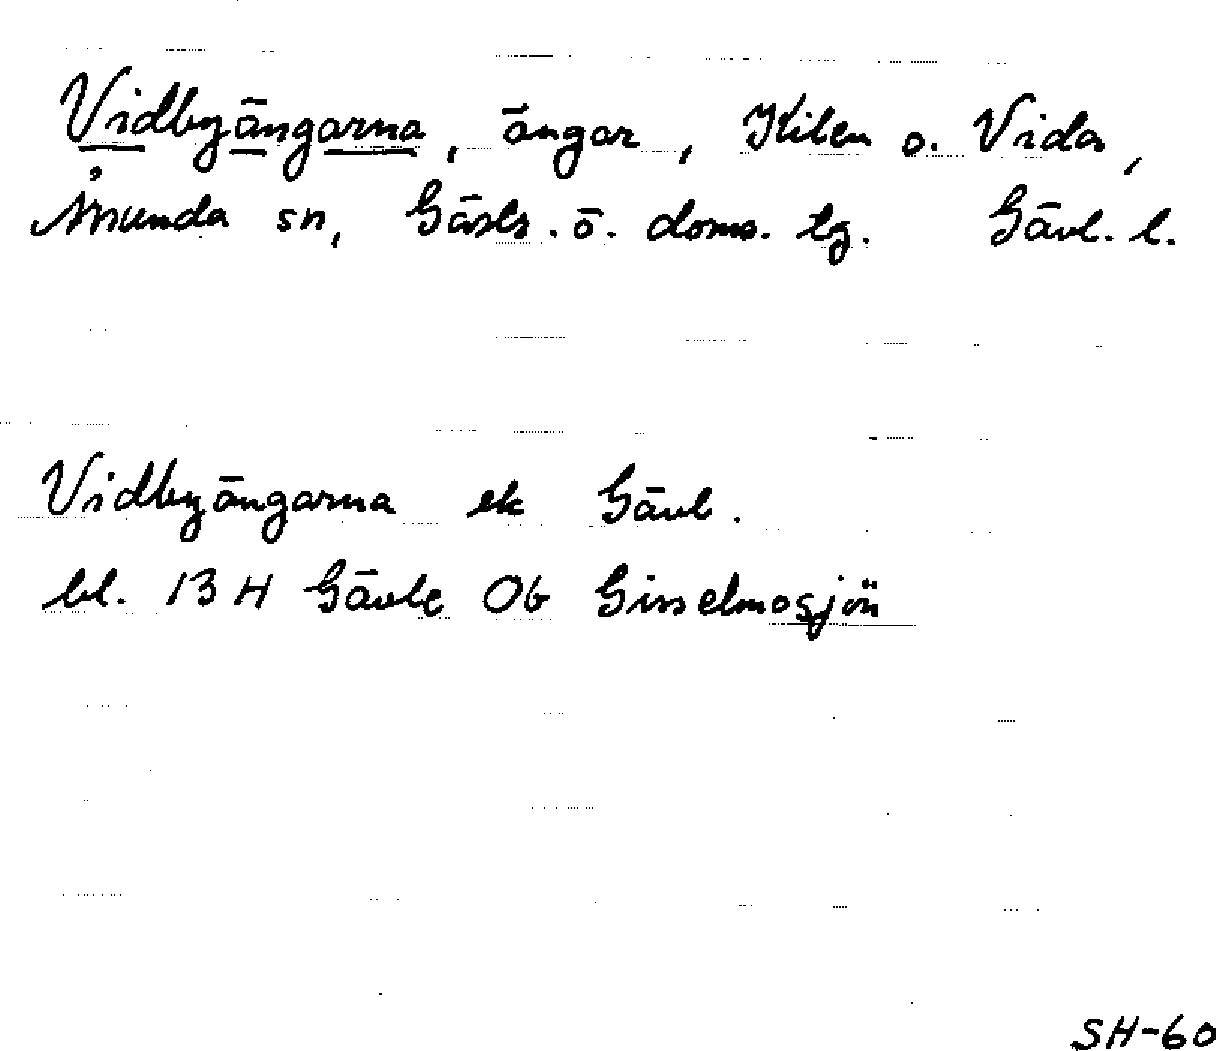 Vidbyängarna, ängar, Kilen o. Vida,
Åmunda sn, Gästr. ö. doms. tg. Gävl. l.
Vidbyängarna ek Gävl.
bl. 13 H Gävle 0b Ginselmosjön
SH-60